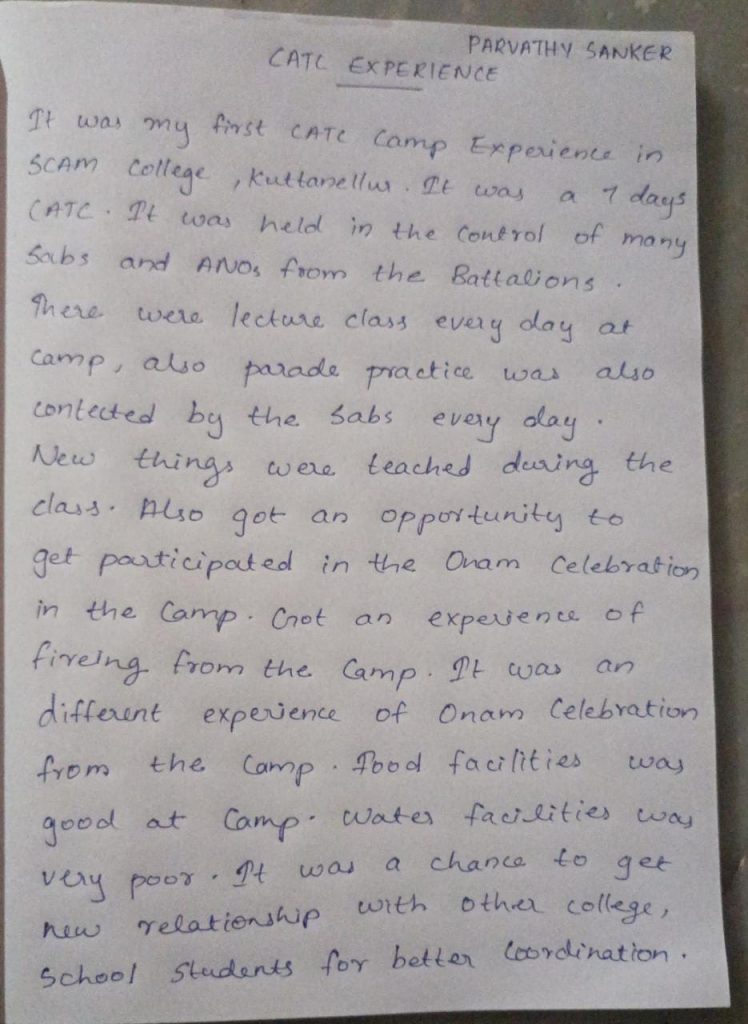 PARVATHY SANKER
CATC EXPERIENCE
It was my first CATC Camp Experience in
SCAM College , Kuttanellur. It was a 7 days
CATC. It was held in the Control of many
Sabs and ANOs from the Battalions .
There were lecture class every day at
camp, also parade practice was also
contected by the Sabs every day .
New things were teached during the
class. Also got an opportunity to
get participated in the Onam Celebration
in the Camp. Got an experience of
fireing from the Camp. It was an
different experience of Onam Celebration
from the Camp . Food facilities was
good at Camp. Water facilities was
very poor . It was a chance to get
new relationship with other college,
School Students for better Coordination .